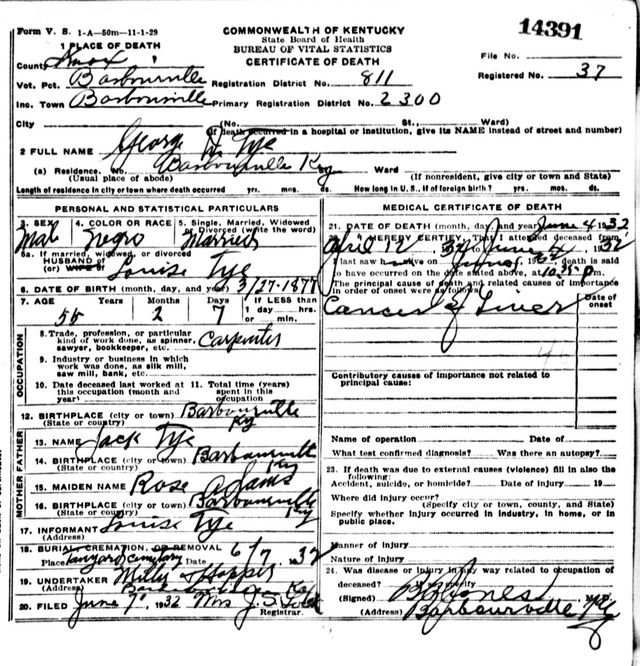 Form V. S. 1-A—50m—11-1-29
COMMONWEALTH OF KENTUCKY
State Board of Health
BUREAU OF VITAL STATISTICS
CERTIFICATE OF DEATH
14391
1 PLACE OF DEATH
County Knox
File No.
Vot. Pct. Barbourville Registration District No. 811
Registered No. 37
Inc. Town Barbourville Primary Registration District No. 2300
City (No. St., Ward)
(If death occurred in a hospital or institution, give its NAME instead of street and number)
2 FULL NAME George W. Tye
(a) Residence. No. Barbourville Ky Ward
(Usual place of abode) (If nonresident, give city or town and State)
Length of residence in city or town where death occurred yrs. mos. ds. How long in U. S., if of foreign birth? yrs. mos. ds.
PERSONAL AND STATISTICAL PARTICULARS
3. SEX Male
4. COLOR OR RACE Negro
5. Single, Married, Widowed or Divorced (write the word) Married
5a. If married, widowed, or divorced
HUSBAND of
(or) WIFE of Louise Tye
6. DATE OF BIRTH (month, day, and year) 3/27-1877
7. AGE Years Months Days If LESS than
1 day hrs.
or min.
55 2 7
OCCUPATION
8. Trade, profession, or particular
kind of work done, as spinner,
sawyer, bookkeeper, etc. Carpenter
9. Industry or business in which
work was done, as silk mill,
saw mill, bank, etc.
10. Date deceased last worked at
this occupation (month and
year)
11. Total time (years)
spent in this
occupation
12. BIRTHPLACE (city or town) Barbourville
(State or country) Ky
FATHER
13. NAME Jack Tye
14. BIRTHPLACE (city or town) Barbourville
(State or country) Ky
MOTHER
15. MAIDEN NAME Rose Adams
16. BIRTHPLACE (city or town) Barbourville
(State or country) Ky
17. INFORMANT Louise Tye
(Address)
18. BURIAL, CREMATION, OR REMOVAL
Place Cemetary Date 6/7, 1932
19. UNDERTAKER
(Address) Ky
20. FILED June 7, 1932 Mrs J. S.
Registrar.
MEDICAL CERTIFICATE OF DEATH
21. DATE OF DEATH (month, day, and year) June 4 1932
22. I HEREBY CERTIFY, That I attended deceased from
April 1932 June 4, 1932
I last saw h alive on June, death is said
to have occurred on the date stated above, at 10 p
The principal cause of death and related causes of importance
in order of onset were as follows:
Date of
onset
Cancer of Liver
Contributory causes of importance not related to
principal cause:
Name of operation Date of
What test confirmed diagnosis? Was there an autopsy?
23. If death was due to external causes (violence) fill in also the
following:
Accident, suicide, or homicide? Date of injury 19
Where did injury occur?
(Specify city or town, county, and State)
Specify whether injury occurred in industry, in home, or in
public place.
Manner of injury
Nature of injury
24. Was disease or injury in any way related to occupation of
deceased? If so, specify
(Signed) Jones
(Address) Barbourville Ky